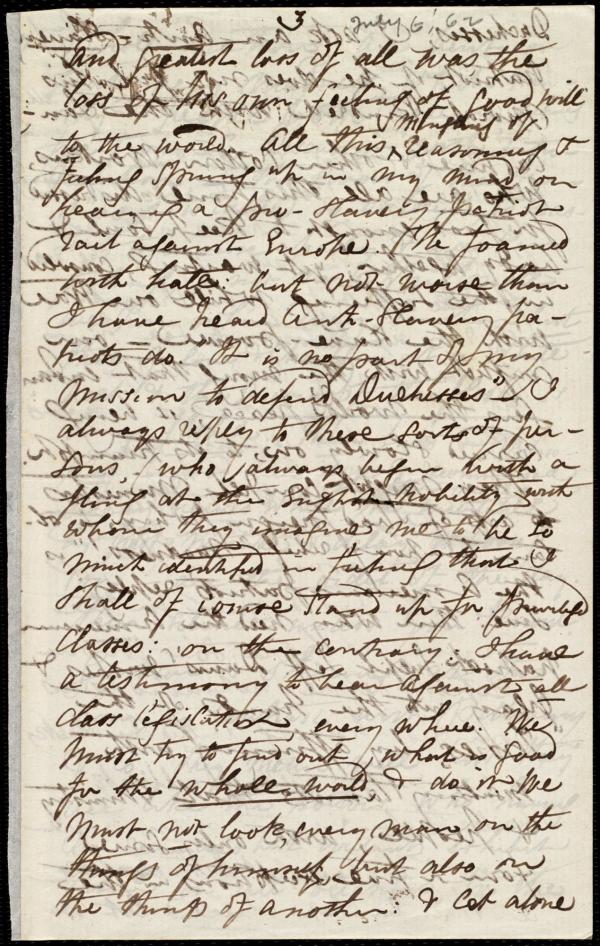 3 July 6, '62
And greatest loss of all was the
loss of his own feeling of good will
to the world. All this mingling of reasoning &
feeling sprung up in my mind on
hearing a pro-slavery patriot
rail against Europe. He foamed
with hate: but not worse than
I have heard Anti-Slavery pa-
triots do. It is no part of my
mission to defend Duchesses" I
always reply to these sorts of per-
sons, (who) always begin with a
fling at the English nobility with
whom they imagine me to be so
much identified in feeling that I
shall of course stand up for privileged
classes: on the contrary: I have
a testimony to bear against all
class legislation, every where. We
must try to find out, what is good
for the whole world, & do it. We
must not look, every man on the
things of himself, but also on
the things of another: & let alone